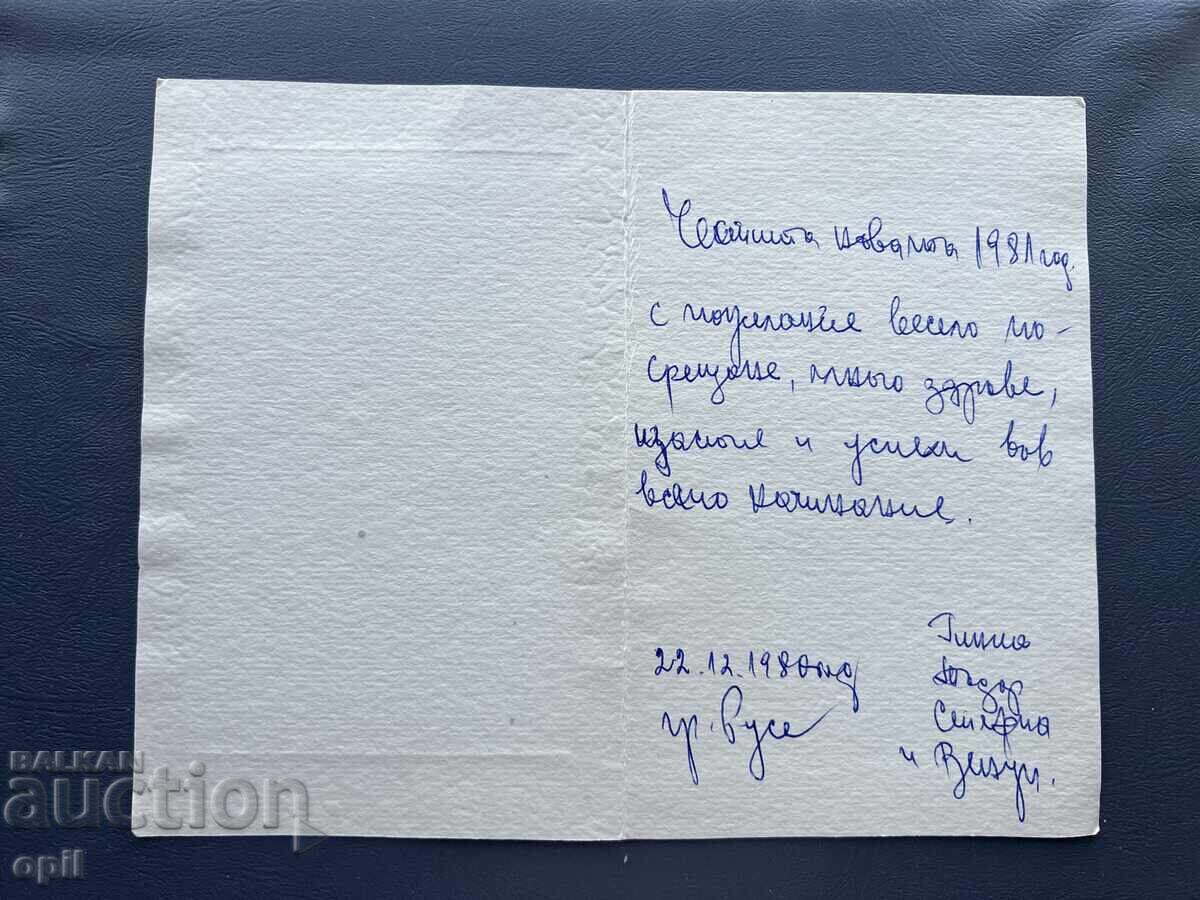 Честита новата 1981 год.
с пожелание весело по-
срещане, много здраве,
щастие и успехи във
всяко начинание.
22.12.1980 год
гр. Русе
и
BALKAN
auction
opil